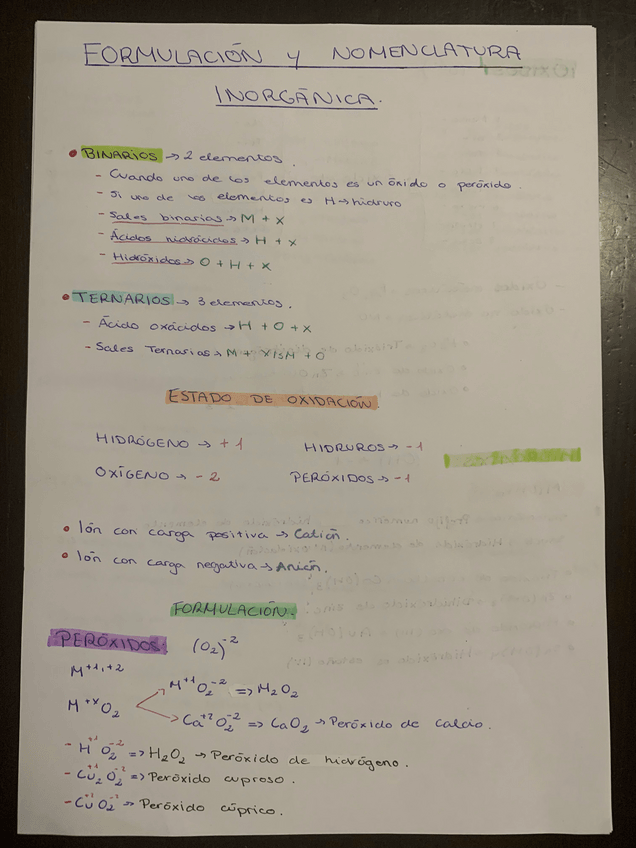 FORMULACIÓN Y NOMENCLATURA
INORGÁNICA.
• BINARIOS → 2 elementos.
- Cuando uno de los elementos es un óxido o peróxido.
- Si uno de los elementos es H → hidruro
- Sales binarias → M + X
- Ácidos hidrácidos → H + X
- Hidróxidos → O + H + X
• TERNARIOS → 3 elementos.
- Ácido oxácidos → H + O + X
- Sales Ternarias → M + X/SM + O
ESTADO DE OXIDACIÓN.
HIDRÓGENO → +1 HIDRUROS → -1
OXÍGENO → -2 PERÓXIDOS → -1
• Ión con carga positiva → Catión.
• Ión con carga negativa → Anión.
FORMULACIÓN.
PERÓXIDOS (O₂)⁻²
M⁺¹,⁺²
M⁺¹O₂⁻² => M₂O₂
M⁺ˣO₂
Ca⁺²O₂⁻² => CaO₂ → Peróxido de calcio.
- H⁺¹O₂⁻² => H₂O₂ → Peróxido de hidrógeno.
- Cu₂⁺¹O₂⁻² => Peróxido cuproso.
- Cu⁺²O₂⁻² → Peróxido cúprico.